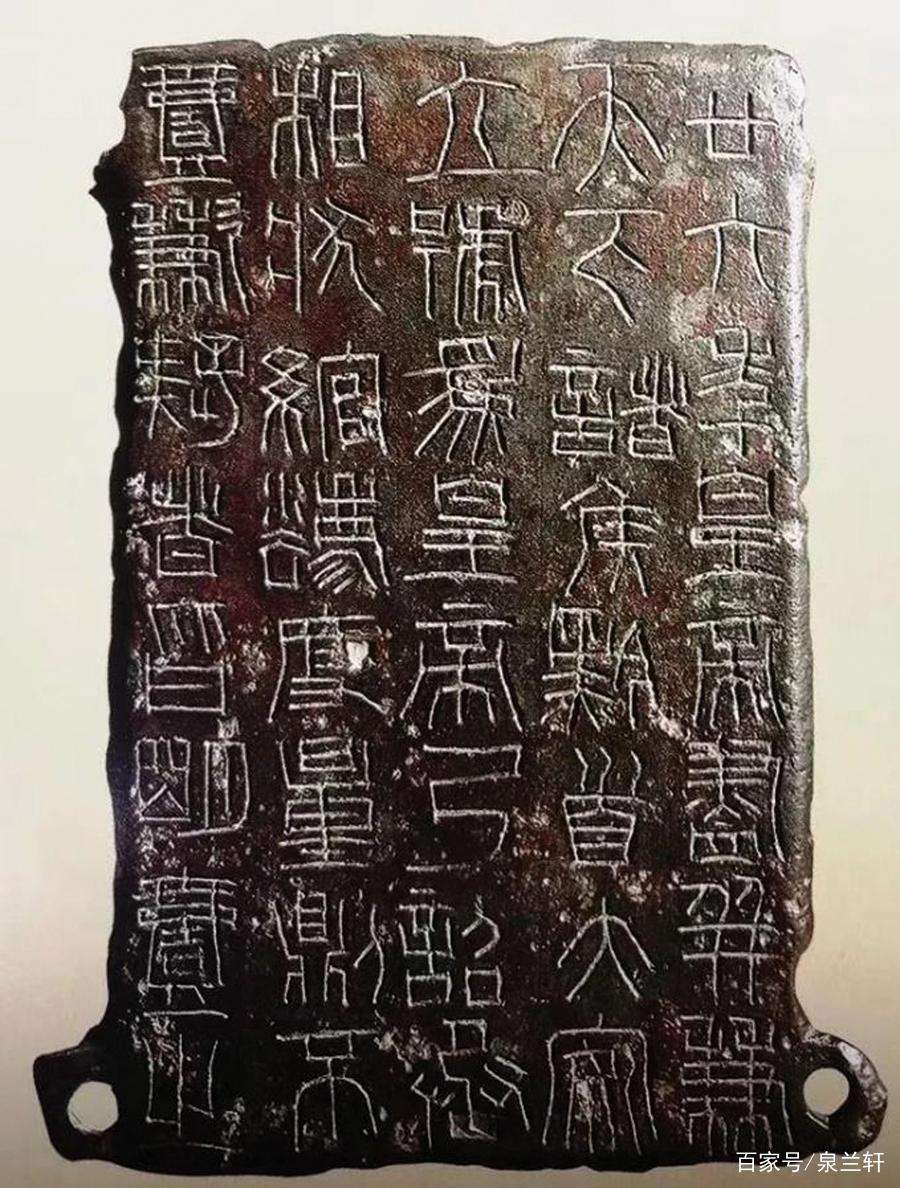 廿六年皇帝盡并兼
天下諸侯黔首大安
立號為皇帝乃詔丞
相狀綰灋度量則不
壹歉疑者皆明壹之
百家号/泉兰轩